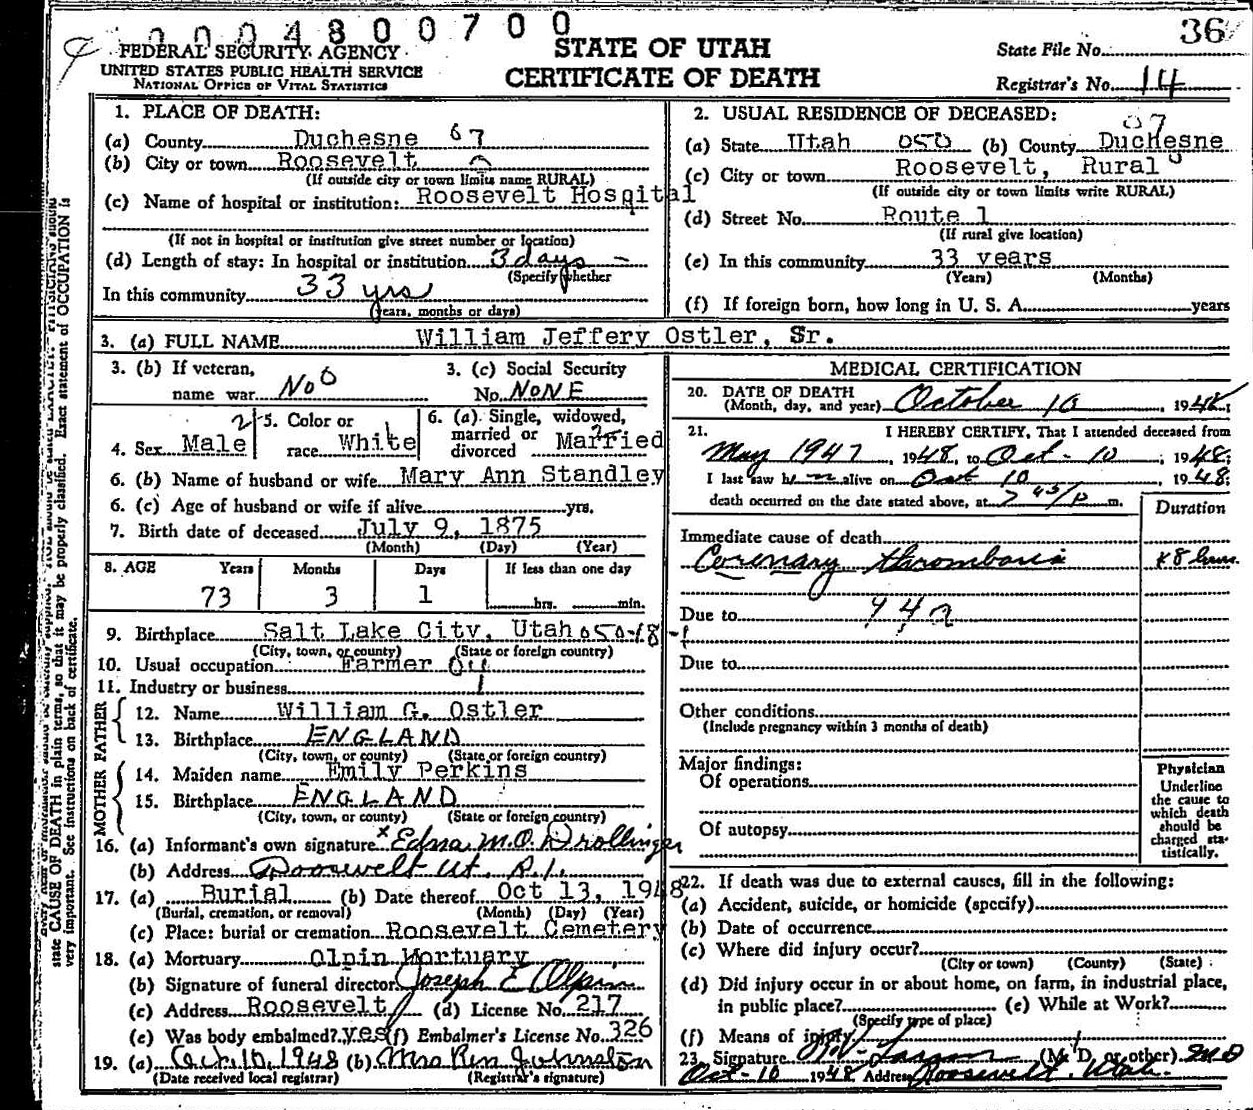 0004800700
36
FEDERAL SECURITY AGENCY
UNITED STATES PUBLIC HEALTH SERVICE
NATIONAL OFFICE OF VITAL STATISTICS
STATE OF UTAH
CERTIFICATE OF DEATH
State File No.
Registrar's No. 14
1. PLACE OF DEATH:
(a) County Duchesne 67
(b) City or town Roosevelt
(If outside city or town limits name RURAL)
(c) Name of hospital or institution: Roosevelt Hospital
(If not in hospital or institution give street number or location)
(d) Length of stay: In hospital or institution 3 days -
(Specify whether
In this community 33 yrs
years, months or days)
2. USUAL RESIDENCE OF DECEASED:
07
(a) State Utah 050 (b) County Duchesne
(c) City or town Roosevelt, Rural
(If outside city or town limits write RURAL)
(d) Street No. Route 1
(If rural give location)
(e) In this community 33 years
(Years) (Months)
(f) If foreign born, how long in U. S. A. years
3. (a) FULL NAME William Jeffery Ostler, Sr.
3. (b) If veteran,
name war. No
3. (c) Social Security
No. NONE
4. Sex Male 2
5. Color or
race White
6. (a) Single, widowed,
married or
divorced Married
6. (b) Name of husband or wife Mary Ann Standley
6. (c) Age of husband or wife if alive yrs.
7. Birth date of deceased July 9, 1875
(Month) (Day) (Year)
8. AGE Years Months Days If less than one day
73 3 1 hrs. min.
9. Birthplace Salt Lake City, Utah 050-18
(City, town, or county) (State or foreign country)
10. Usual occupation Farmer
11. Industry or business
FATHER
12. Name William G. Ostler
13. Birthplace ENGLAND
(City, town, or county) (State or foreign country)
MOTHER
14. Maiden name Emily Perkins
15. Birthplace ENGLAND
(City, town, or county) (State or foreign country)
16. (a) Informant's own signature x Edna M.O. Drollinger
(b) Address Roosevelt Ut. R.1.
17. (a) Burial (b) Date thereof Oct 13, 1948
(Burial, cremation, or removal) (Month) (Day) (Year)
(c) Place: burial or cremation Roosevelt Cemetery
18. (a) Mortuary Olpin Mortuary
(b) Signature of funeral director Joseph E Olpin
(c) Address Roosevelt (d) License No. 217
(e) Was body embalmed? yes (f) Embalmer's License No. 326
19. (a) Oct. 10, 1948 (b) Mrs Ren Johnston
(Date received local registrar) (Registrar's signature)
MEDICAL CERTIFICATION
20. DATE OF DEATH
(Month, day, and year) October 10, 1948;
21. I HEREBY CERTIFY, That I attended deceased from
May 1947, 1948, to Oct - 10, 1948;
I last saw him alive on Oct 10, 1948;
death occurred on the date stated above, at 7 45/P m.
Duration
Immediate cause of death
Coronary thrombosis
Due to 94a
Due to
Other conditions
(Include pregnancy within 3 months of death)
Major findings:
Of operations
Of autopsy
Physician
Underline
the cause to
which death
should be
charged sta-
tistically.
22. If death was due to external causes, fill in the following:
(a) Accident, suicide, or homicide (specify)
(b) Date of occurrence
(c) Where did injury occur?
(City or town) (County) (State)
(d) Did injury occur in or about home, on farm, in industrial place,
in public place? (e) While at Work?
(Specify type of place)
(f) Means of injury
23. Signature (M. D. or other) MD
Oct - 10 1948 Address Roosevelt, Utah.
state CAUSE OF DEATH in plain terms, so that it may be properly classified. Exact statement of OCCUPATION is
very important. See instructions on back of certificate.